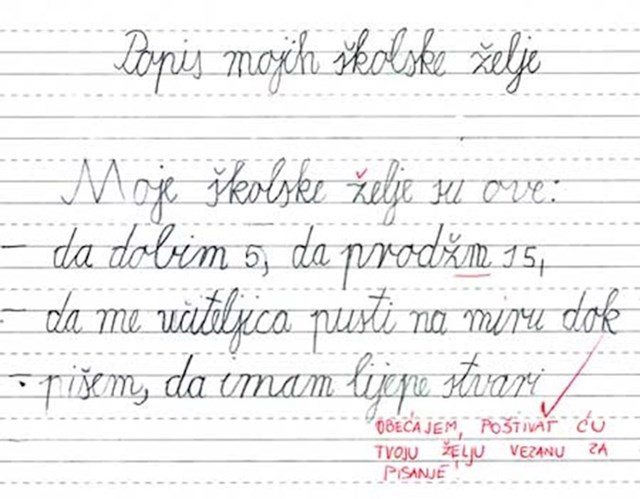 Popis mojih školske želje
Moje školske želje su ove:
– da dobim 5, da prodžm 15,
– da me učiteljica pusti na miru dok
- pišem, da imam lijepe stvari
OBEĆAJEM, POŠTIVAT ĆU
TVOJU ŽELJU VEZANU ZA
PISANJE!